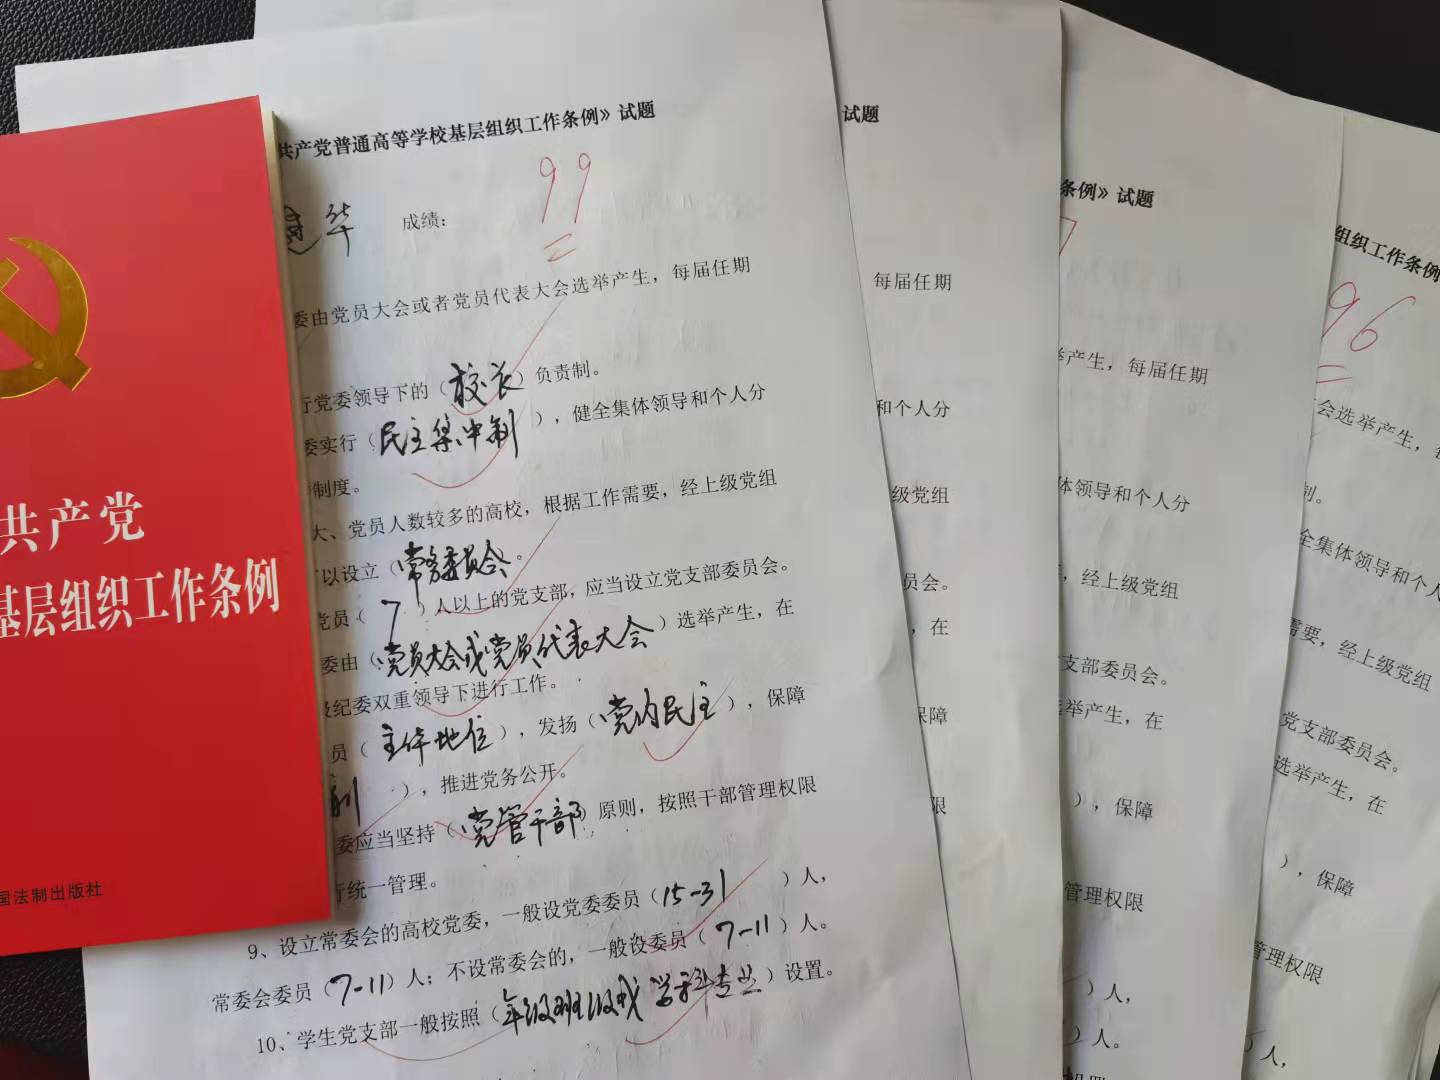 共产党
基层组织工作条例
国法制出版社
共产党普通高等学校基层组织工作条例》试题
华 成绩: 99
委由党员大会或者党员代表大会选举产生，每届任期
行党委领导下的（校长）负责制。
委实行（民主集中制），健全集体领导和个人分
制度。
大、党员人数较多的高校，根据工作需要，经上级党组
可以设立（常务委员会。
党员（7）人以上的党支部，应当设立党支部委员会。
委由（党员大会或党员代表大会）选举产生，在
级纪委双重领导下进行工作。
员（主体地位），发扬（党内民主），保障
利），推进党务公开。
委应当坚持（党管干部）原则，按照干部管理权限
行统一管理。
9、设立常委会的高校党委，一般设党委委员（15-31）人，
常委会委员（7-11）人；不设常委会的，一般设委员（7-11）人。
10、学生党支部一般按照（年级班级或学科专业）设置。
试题
每届任期
和个人分
级党组
员会。
，在
保障
限
条例》试题
7
举产生，每届任期
体领导和个人分
，经上级党组
支部委员会。
选举产生，在
），保障
管理权限
）人，
）人。
组织工作条例
96
大会选举产生，每
制。
全集体领导和个人
需要，经上级党组
党支部委员会。
选举产生，在
），保障
管理权限
）人，